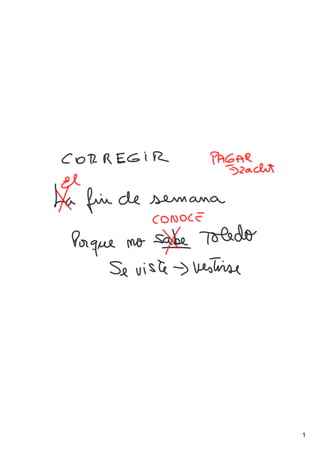 CORREGIR PAGAR
→zacht
el
La fin de semana
CONOCE
Porque no sabe Toledo
Se viste → vestirse
1